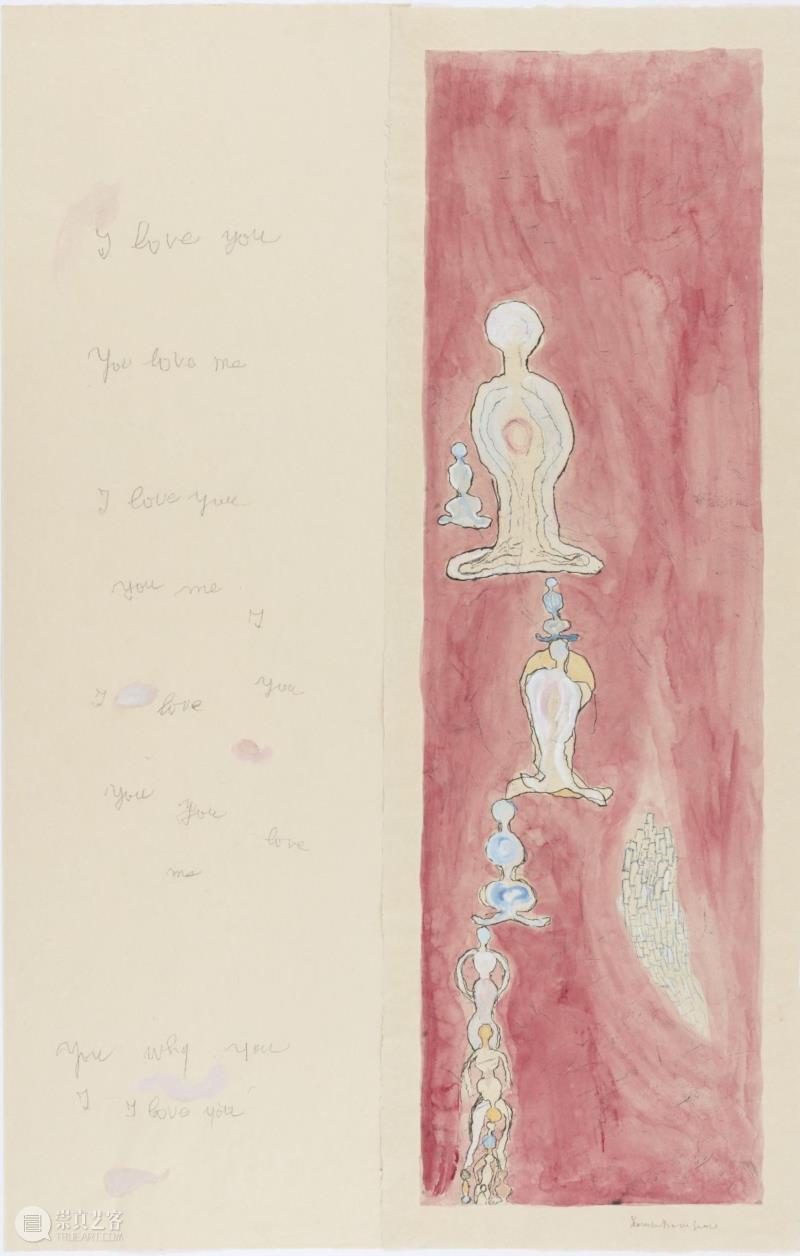 I love you
You love me
I love you
you me
I
I love you
you you
love
me
You why you
I I love you
崇真艺客
TRUEART.COM